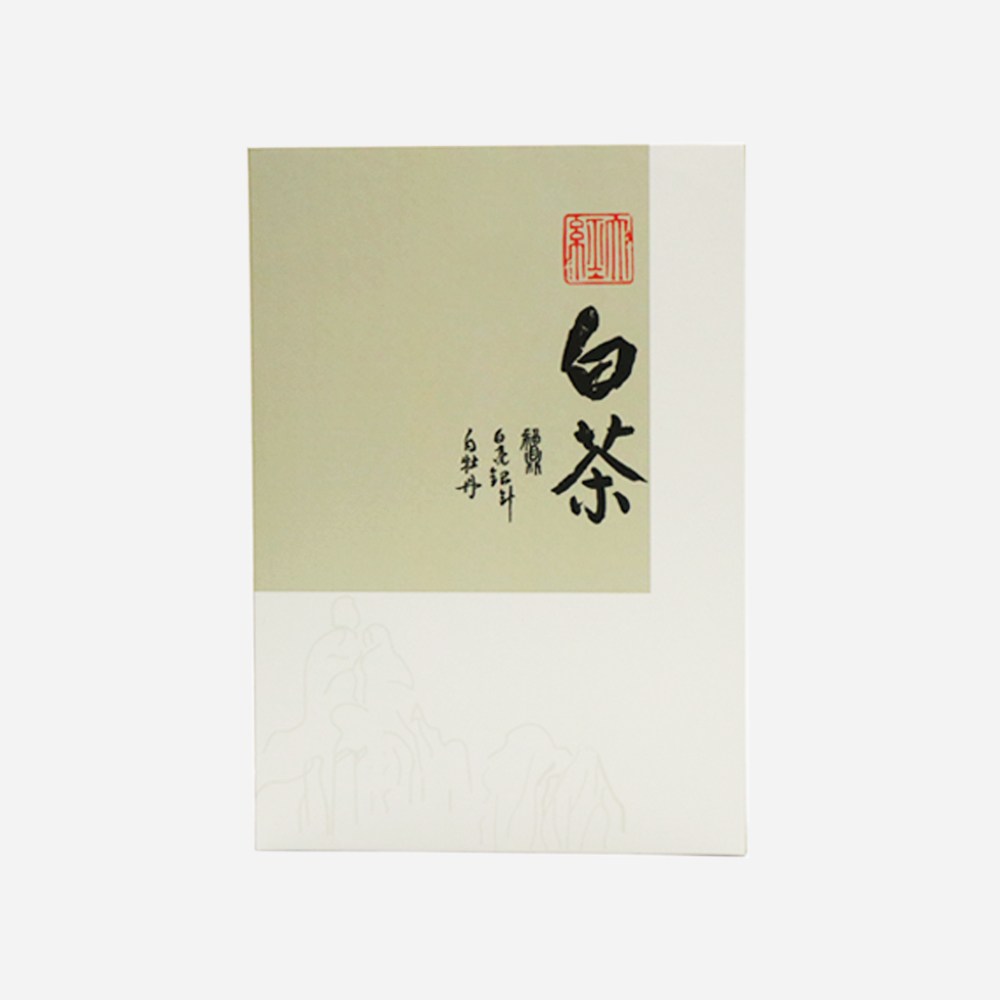 白茶
福鼎
白毫银针
白牡丹